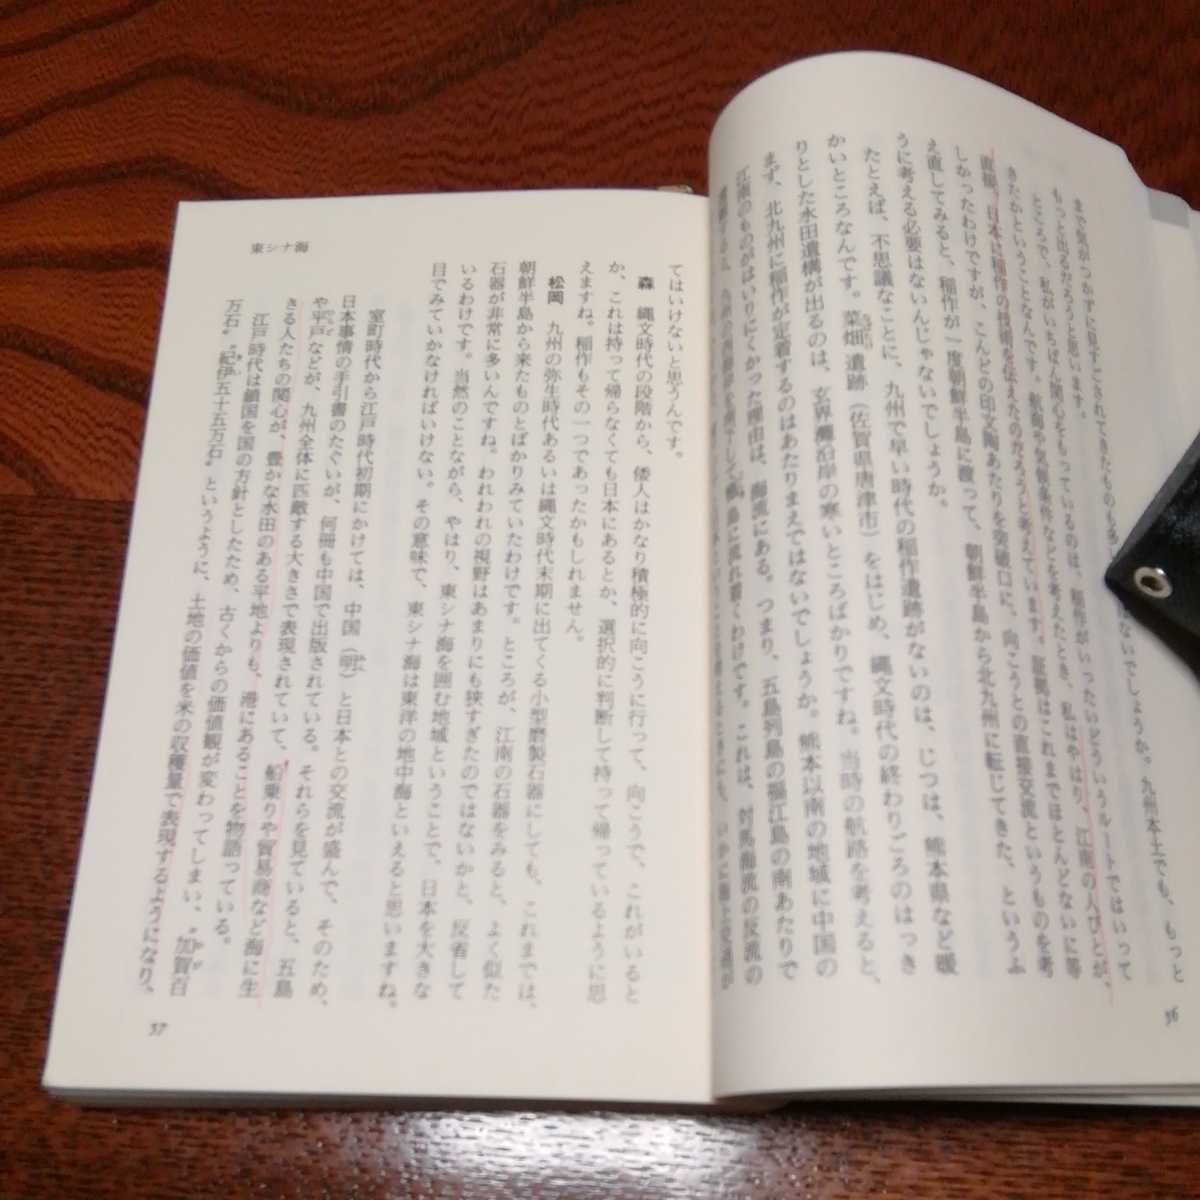 まで気がつかずに見すごされてきたものも多いんじゃないでしょうか。九州本土でも、もっと
もっと出るだろうと思います。
ところで、私がいちばん関心をもっているのは、稲作がいったいどういうルートではいって
きたかということなんです。航海や気候条件などを考えたとき、私はやはり、江南の人びとが、
直接、日本に稲作の技術を伝えたのだろうと考えています。証拠はこれまでほとんどないに等
しかったわけですが、こんどの印文陶あたりを突破口に、向こうとの直接交流というものを考
え直してみると、稲作が一度朝鮮半島に渡って、朝鮮半島から北九州に転じてきた、というふ
うに考える必要はないんじゃないでしょうか。
たとえば、不思議なことに、九州で早い時代の稲作遺跡がないのは、じつは、熊本県など暖
かいところなんです。菜畑遺跡（佐賀県唐津市）をはじめ、縄文時代の終わりごろのはっき
りとした水田遺構が出るのは、玄界灘沿岸の寒いところばかりですね。当時の航路を考えると、
まず、北九州に稲作が定着するのはあたりまえではないでしょうか。熊本以南の地域に中国の
江南のものがはいりにくかった理由は、海流にある。つまり、五島列島の福江島の南あたりで
島に流れ着くわけです。これは、対馬海流の反流の
36
東シナ海
てはいけないと思うんです。
森　縄文時代の段階から、倭人はかなり積極的に向こうに行って、向こうで、これがいると
か、これは持って帰らなくても日本にあるとか、選択的に判断して持って帰っているように思
えますね。稲作もその一つであったかもしれません。
松岡　九州の弥生時代あるいは縄文時代末期に出てくる小型磨製石器にしても、これまでは、
朝鮮半島から来たものとばかりみていたわけです。ところが、江南の石器をみると、よく似た
石器が非常に多いんですね。われわれの視野はあまりにも狭すぎたのではないかと、反省して
いるわけです。当然のことながら、やはり、東シナ海を囲む地域ということで、日本を大きな
目でみていかなければいけない。その意味で、東シナ海は東洋の地中海といえると思いますね。
室町時代から江戸時代初期にかけては、中国（明）と日本との交流が盛んで、そのため、
日本事情の手引書のたぐいが、何冊も中国で出版されている。それらを見ていると、五島
や平戸などが、九州全体に匹敵する大きさで表現されていて、船乗りや貿易商など海に生
きる人たちの関心が、豊かな水田のある平地よりも、港にあることを物語っている。
江戸時代は鎖国を国の方針としたため、古くからの価値観が変わってしまい、〝加賀百
万石〟〝紀伊五十五万石〟というように、土地の価値を米の収穫量で表現するようになり、
37